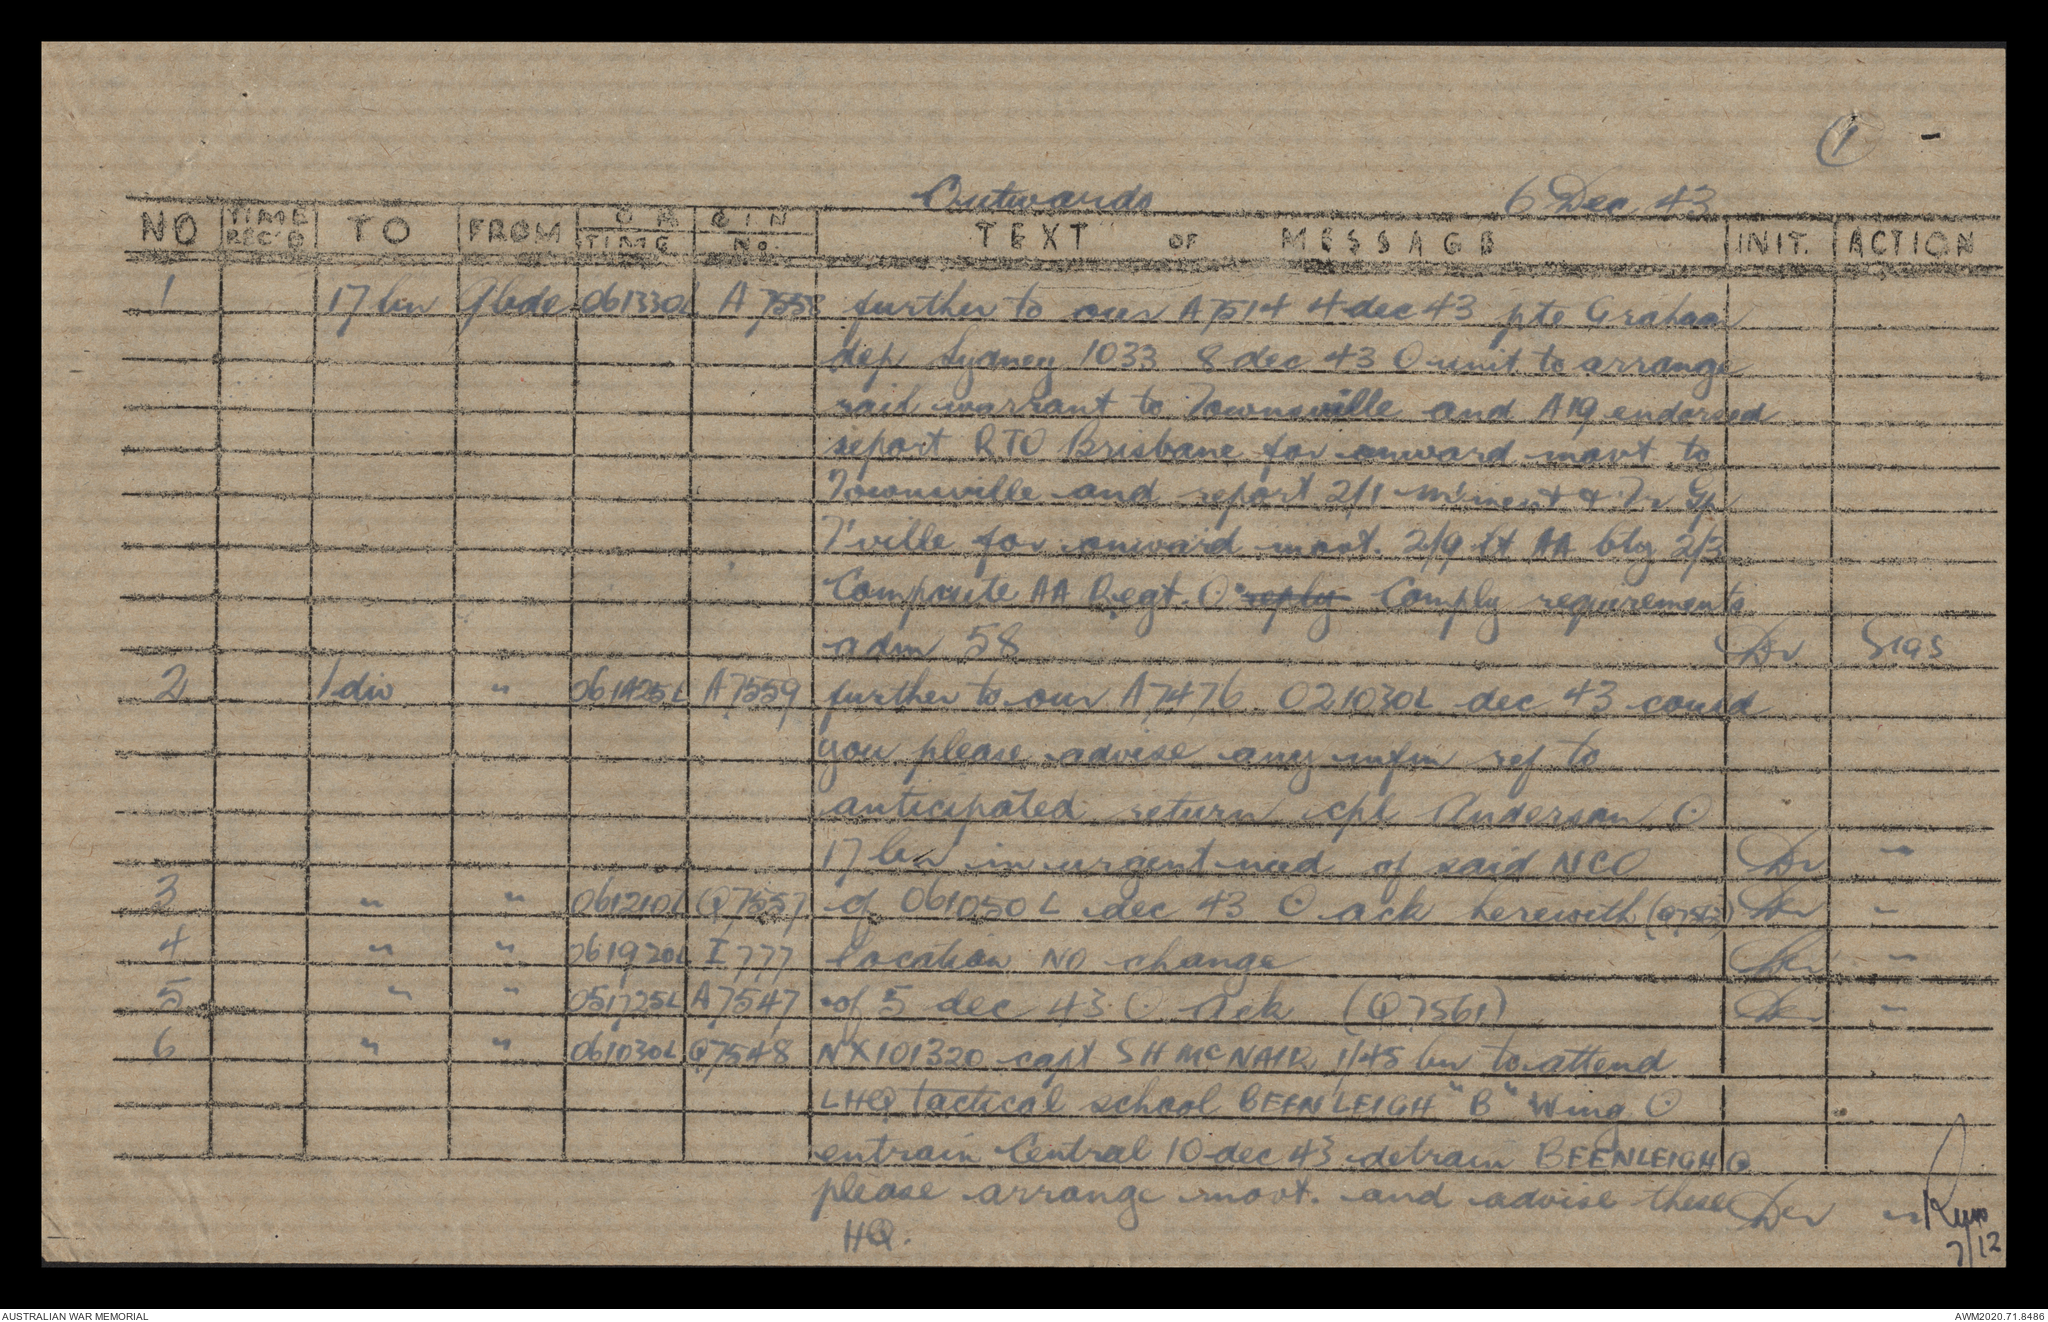 1 -
Outwards 6 Dec. 43
NO TIME REC'D TO FROM O R I G I N TIME No. TEXT OF MESSAGE INIT. ACTION
1 17 bn 9 bde 061330L A 7558 further to our A7514 4 dec 43 pte Graham
dep Sydney 1033 8 dec 43 O unit to arrange
rail warrant to Townsville and A19 endorsed
report RTO Brisbane for onward movt to
Townsville and report 2/1 & Tr Gp
T'ville for onward movt. 2/9 lt AA bty 2/3
Composite AA Regt. O reply Comply requirements
adm 58 Sigs
2 1 div " 061425L A7559 further to our A7476 021030L dec 43 could
you please advise any infm ref to
anticipated return cpl Anderson O
17 bn in urgent need of said NCO "
3 " " 061210L Q7557 of 061050L dec 43 O ack herewith "
4 " " 061920L I 777 location NO change "
5 " " 051725L A7547 of 5 dec 43 O Ack (Q7561) "
6 " " 061030L Q7548 NX101320 capt SH McNAIR 1/45 bn to attend
LHQ tactical school BEENLEIGH "B" Wing O
entrain Central 10 dec 43 detrain BEENLEIGH O
please arrange movt. and advise these "
HQ.
7/12
AUSTRALIAN WAR MEMORIAL AWM2020.71.8486